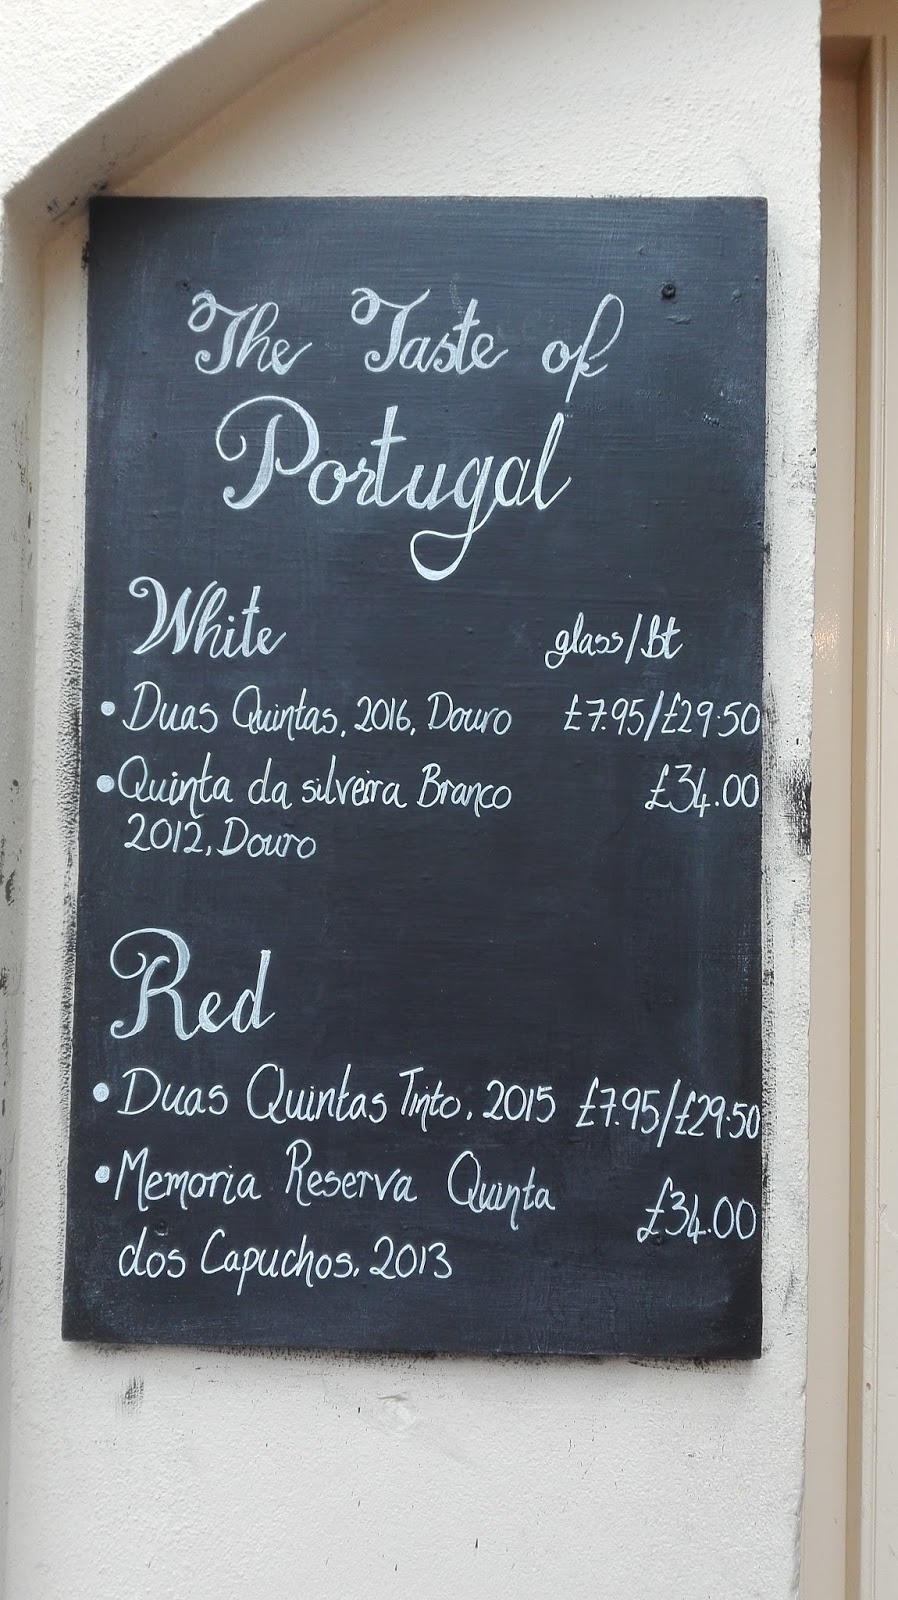 The Taste of
Portugal
White glass/Bt
• Duas Quintas, 2016, Douro £7.95/£29.50
• Quinta da silveira Branco £34.00
2012, Douro
Red
• Duas Quintas Tinto, 2015 £7.95/£29.50
• Memoria Reserva Quinta £34.00
dos Capuchos, 2013